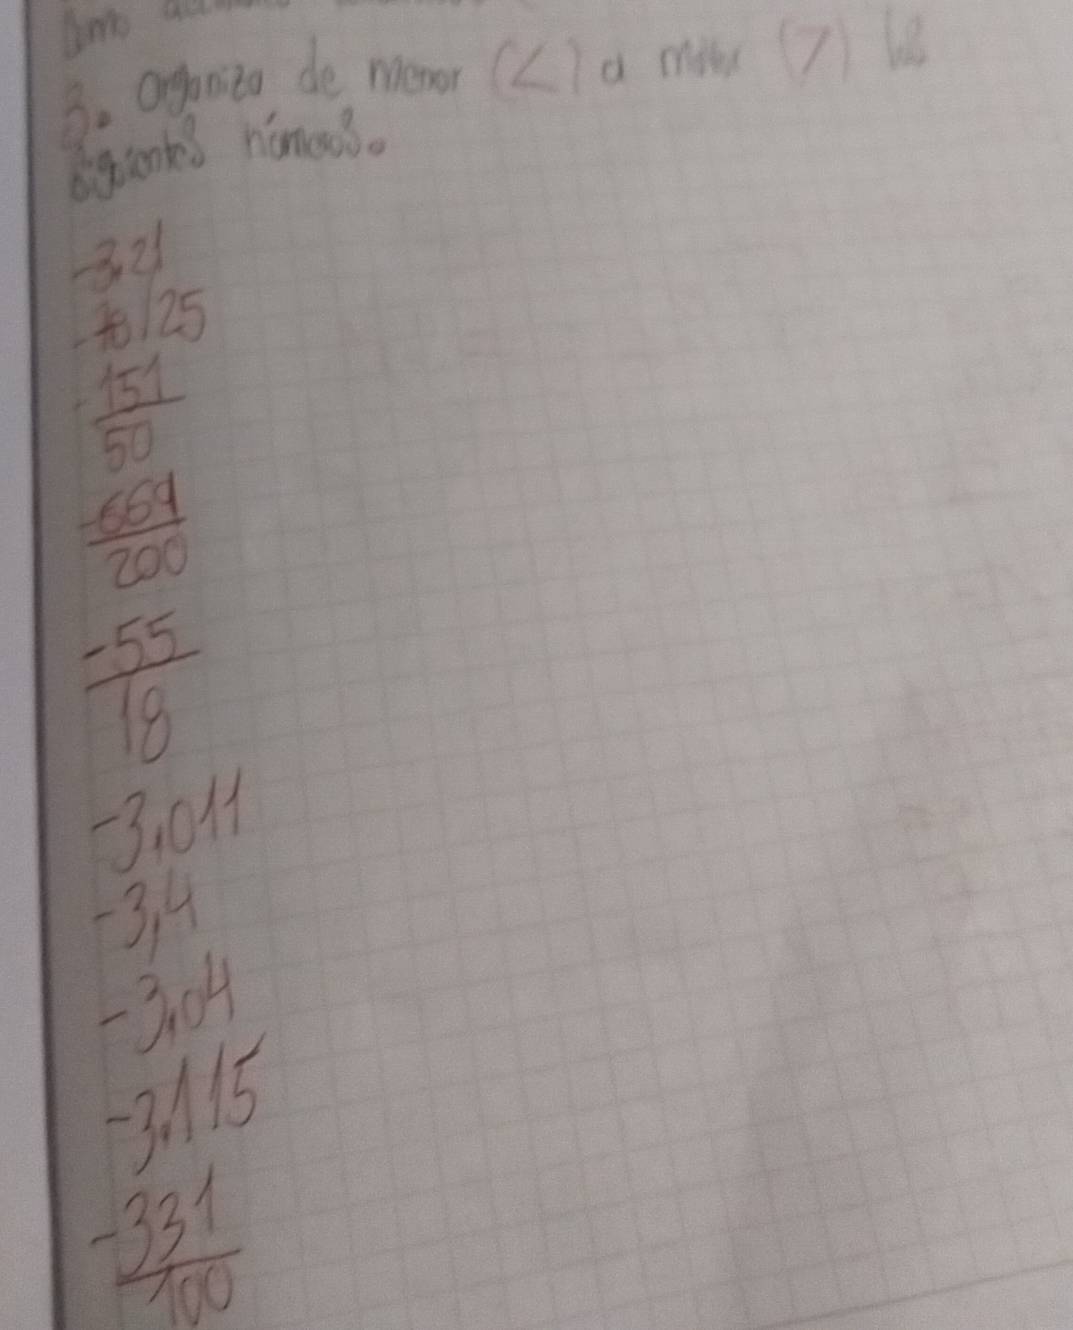 3. Organiza de menor (<) a mayor (>) los
siguientes números.
-3,21
/25
-151
50
-669
200
-55
18
-3,011
-3,4
-3,04
-3,115
-331
100